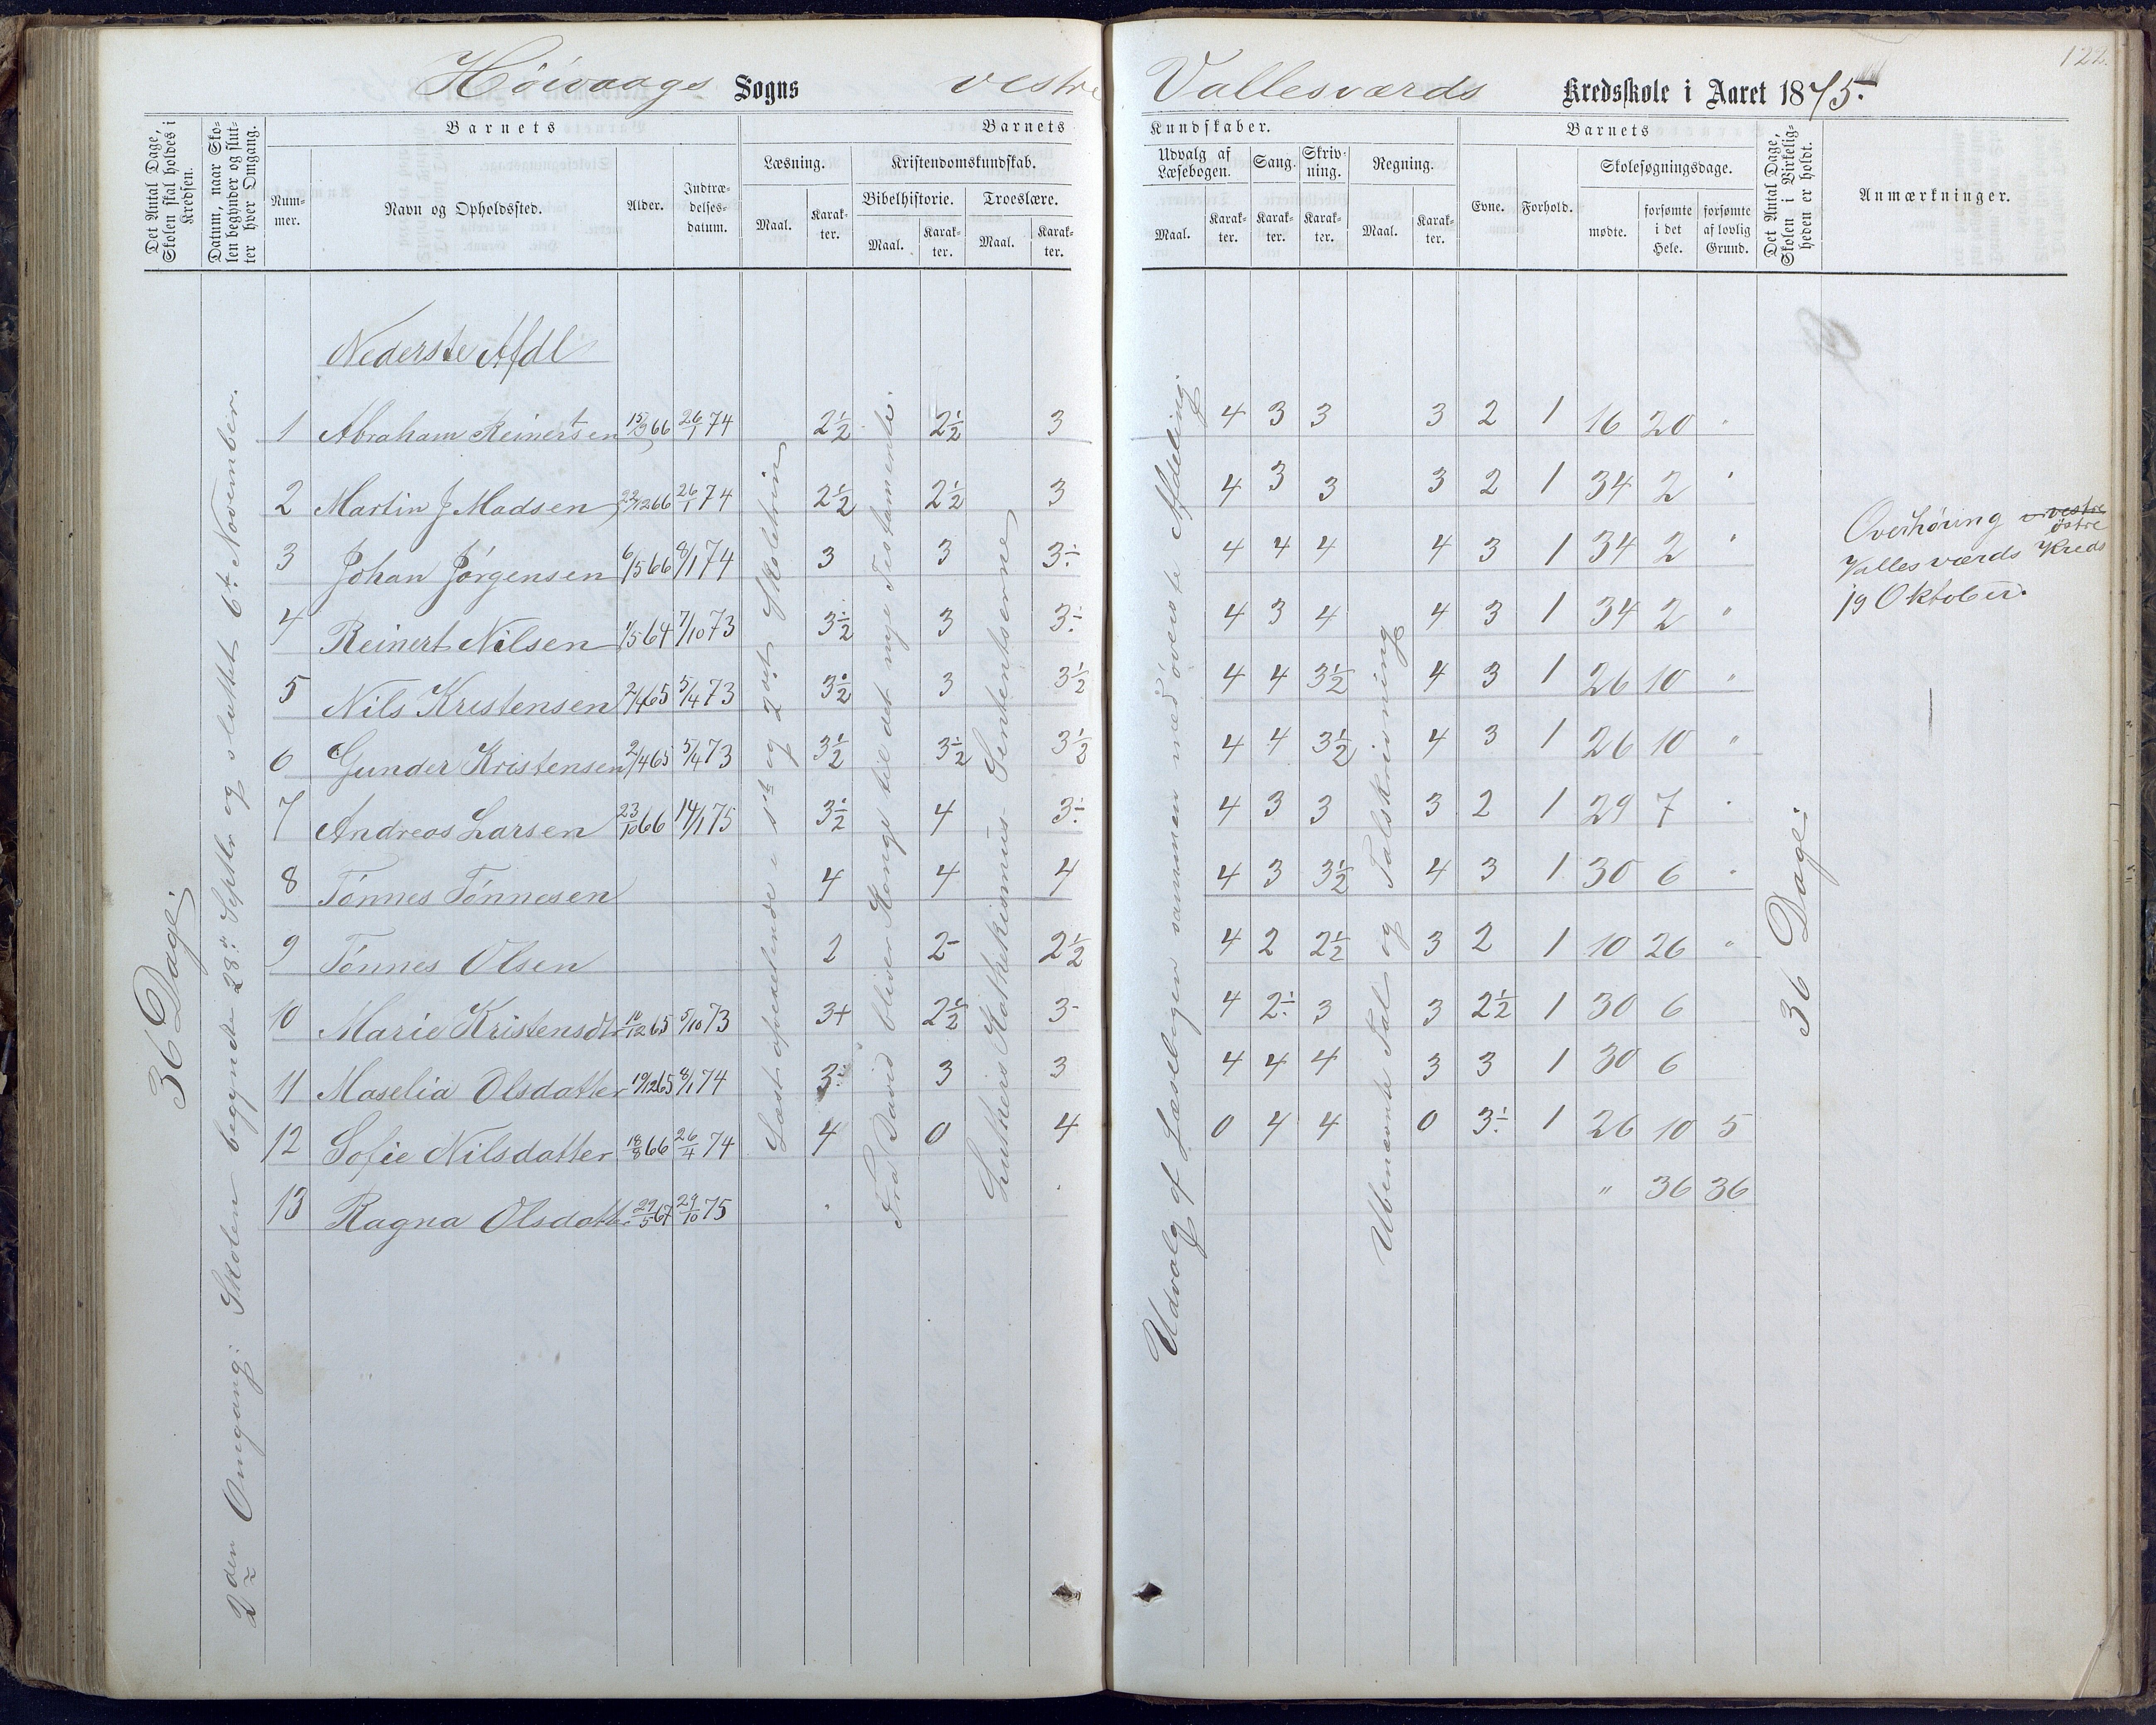 122.
Höivaags Sogns vestre Vallesværds Kredsskole i Aaret 1875.
Det Antal Dage, Skolen skal holdes i Kredsen.
Datum, naar Skolen begynder og slutter hver Omgang.
Barnets
Nummer.
Navn og Opholdssted.
Alder.
Indtrædelsesdatum.
Barnets Kundskaber.
Læsning.
Maal.
Karakter.
Kristendomskundskab.
Bibelhistorie.
Maal.
Karakter.
Troeslære.
Maal.
Karakter.
Udvalg af Læsebogen.
Maal.
Karakter.
Sang.
Karakter.
Skrivning.
Karakter.
Regning.
Maal.
Karakter.
Barnets
Evne.
Forhold.
Skolesøgningsdage.
mødte.
forsømte i det Hele.
forsømte af lovlig Grund.
Det Antal Dage, Skolen i Virkeligheden er holdt.
Anmærkninger.
36 Dage.
2den Omgang: Skolen begyndte 28de Septbr og sluttet 6te November.
Nederste Afdl
1 Abraham Reinertsen 15/9 66 26/1 74 2½ 2½ 3 4 3 3 3 2 1 16 20 "
2 Martin J Madsen 22/12 66 26/1 74 2½ 2½ 3 4 3 3 3 2 1 34 2 "
3 Johan Jörgensen 6/5 66 8/1 74 3 3 3÷ 4 4 4 4 3 1 34 2 "
4 Reinert Nilsen 1/5 64 7/10 73 3½ 3 3÷ 4 3 4 4 3 1 34 2 "
5 Nils Kristensen 2/4 65 5/4 73 3½ 3 3½ 4 4 3½ 4 3 1 26 10 "
6 Gunder Kristensen 2/4 65 5/4 73 3½ 3½ 3½ 4 4 3½ 4 3 1 26 10 "
7 Andreas Larsen 23/10 66 14/1 75 3½ 4 3÷ 4 3 3 3 2 1 29 7 "
8 Tönnes Tönnesen 4 4 4 4 3 3½ 4 3 1 30 6 "
9 Tönnes Olsen 2 2- 2½ 4 2 2½ 3 2 1 10 26 "
10 Marie Kristensdtr 10/12 65 5/10 73 3+ 2½ 3- 4 2÷ 3 3 2½ 1 30 6
11 Maselia Olsdatter 19/12 65 8/1 74 3÷ 3 3 4 4 4 3 3 1 30 6
12 Sofie Nilsdatter 18/8 66 26/4 74 4 0 4 0 4 4 0 3÷ 1 26 10 5
13 Ragna Olsdattr 29/5 67 29/10 75 " 36 36
Læst afvexlende i 1ste og 2det Skoletrin
Fra David bliver Konge til det nye Testamente.
Luthers Katekismus- Sententserne
Udvalg af Læsebogen sammen med øverste Afdeling
Ubenævnte Tal og Talskrivning
36 Dage.
Overhøring vestre
østre
Vallesværds Kreds
19 Oktober.